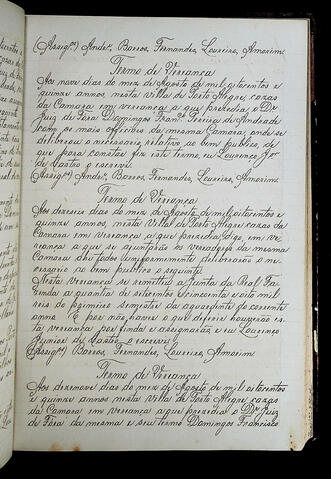 (Assig.os) Andr.e, Barros, Fernandes, Loureiro, Amorim.
Termo de Vereança
Aos nove dias do mez de Agosto de mil oitocentos e
quinze annos, nesta villa de Porto Alegre, cazas
da Camara em vereança a que prezedio o Dr.
Juiz de Fóra Domingos Fran.co Freire de Andrade
com os mais officiaes da mesma Camara, onde se
deliberou o necessario relativo ao bem publico, de
que para constar fiz este termo, eu Lourenço Jor
de Castro o escrevi.
(Assig.os) Andr.e, Barros, Fernandes, Loureiro, Amorim.
Termo de Vereança
Aos dezeseis dias do mez de Agosto de mil oitocentos e
quinze annos, nesta Villa de Porto Alegre cazas da
Camara em vereança a que prezedio digo, em ve-
reança a que se ajuntarão os vereadores da mesma
Camara ahi todos uniformemente deliberarão o ne-
cessario ao bem publico e seguinte
Nesta vereança se remetteu a Junta da Real Fa-
zenda a quantia de oitocentos e cincoenta e oito mil
reis do primeiro semestre da aguardente do corrente
anno. E por não haver o que diferir houverão es-
ta vereança por finda e assignarão e eu Lourenço
Junior de Castro o escrevi
(Assig.os) Barros, Fernandes, Loureiro, Amorim.
Termo de Vereança
Aos dezenove dias do mez de Agosto de mil oitocentos
e quinze annos nesta villa de Porto Alegre cazas da
Camara em vereança a que prezedio o Dr. Juiz
de Fóra da mesma e seu termo Domingos Francisco